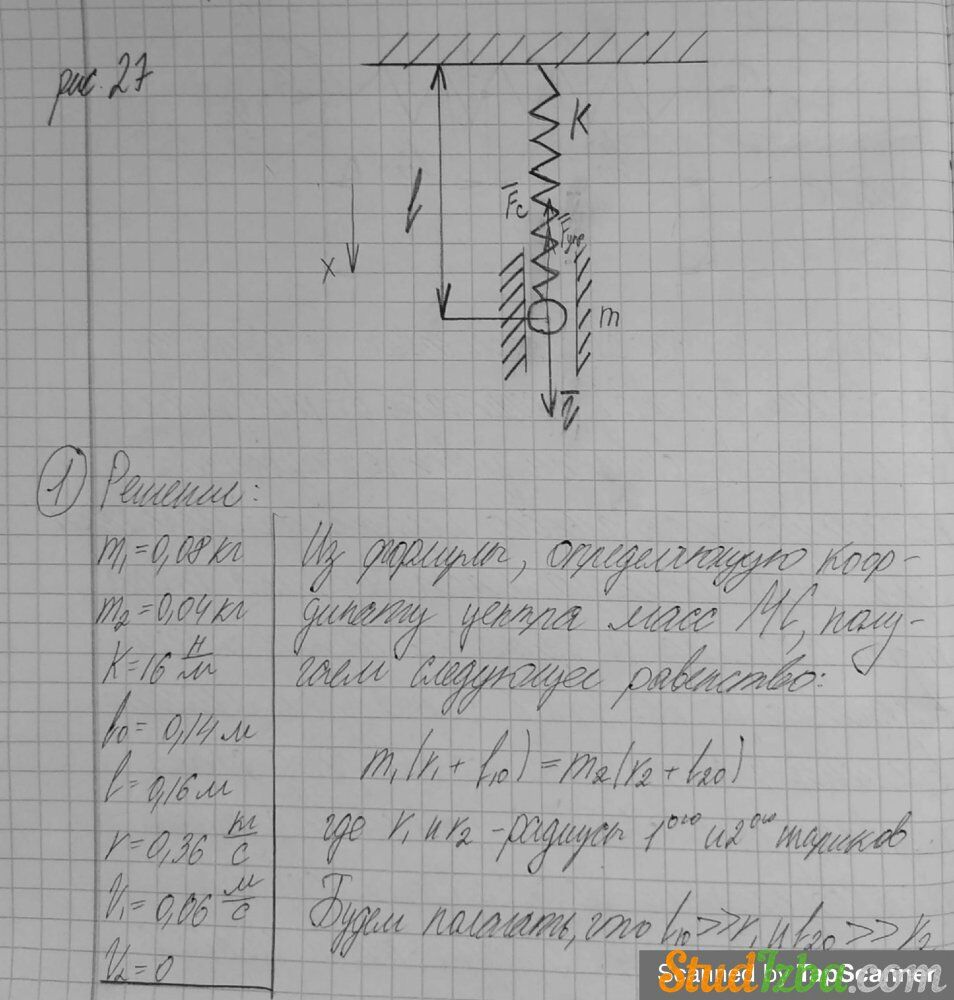 рис. 27
K
F̅c
F̅упр
l
x
m
v̅
1 Решение:
m₁=0,08 кг
m₂=0,04 кг
K=16 Н/м
l₀=0,14 м
l=0,16 м
r=0,36 кг/с
V₁=0,06 м/с
V₂=0
Из формулы, определяющую коор-
динату центра масс МС, полу-
чаем следующее равенство:
m₁(r₁+l₁₀)=m₂(r₂+l₂₀)
где r₁ и r₂ - радиусы 1ого и 2ого шариков
Будем полагать, что l₁₀>>r₁ и l₂₀>>r₂
StudIzba.com
Scanned by TapScanner